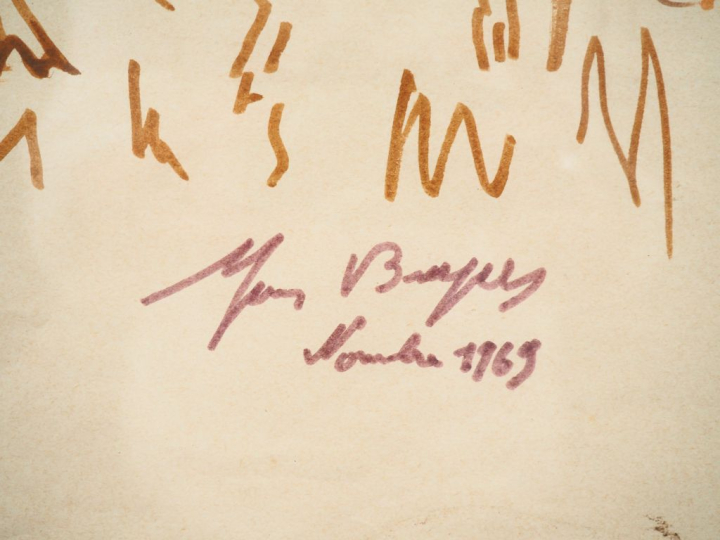 Yves Brayer
Novembre 1969